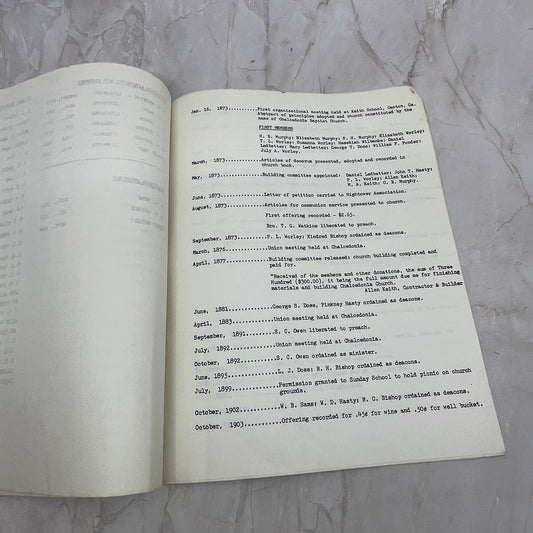 Jan. 18, 1873..........First organizational meeting held at Keith School, Canton, Ga.
Abstract of principles adopted and church constituted by the
name of Chalcedonia Baptist Church.
FIRST MEMBERS
H. B. Murphy; Elizabeth Murphy; S. H. Murphy; Elizabeth Worley;
T. L. Worley; Susanna Worley; Hezekiah Wilbanks; Daniel
Ledbetter; Mary Ledbetter; George T. Doss; William F. Ponder;
July A. Worley.
March, 1873............Articles of decorum presented, adopted and recorded in
church book.
May, 1873..............Building committee appointed: Daniel Ledbetter; John T. Hasty;
P. L. Worley; Allen Keith;
M. A. Keith; C. B. Murphy.
June, 1873.............Letter of petition carried to Hightower Association.
August, 1873...........Articles for communion service presented to church.
First offering recorded - $2.65.
Bro. T. G. Watkins liberated to preach.
September, 1873........P. L. Worley; Kindred Bishop ordained as deacons.
March, 1876............Union meeting held at Chalcedonia.
April, 1877............Building committee released; church building completed and
paid for.
"Received of the members and other donations, the sum of Three
Hundred ($300.00), it being the full amount due as for finishing
materials and building Chalcedonia Church.
Allen Keith, Contractor & Builder
June, 1881.............George S. Doss, Pinkney Hasty ordained as deacons.
April, 1883............Union meeting held at Chalcedonia.
September, 1891........S. C. Owen liberated to preach.
July, 1892.............Union meeting held at Chalcedonia.
October, 1892..........S. C. Owen ordained as minister.
June, 1895.............L. J. Doss; R. H. Bishop ordained as deacons.
July, 1899.............Permission granted to Sunday School to hold picnic on church
grounds.
October, 1902..........W. B. Sams; W. D. Hasty; N. C. Bishop ordained as deacons.
October, 1903..........Offering recorded for .45¢ for wine and .50¢ for well bucket.